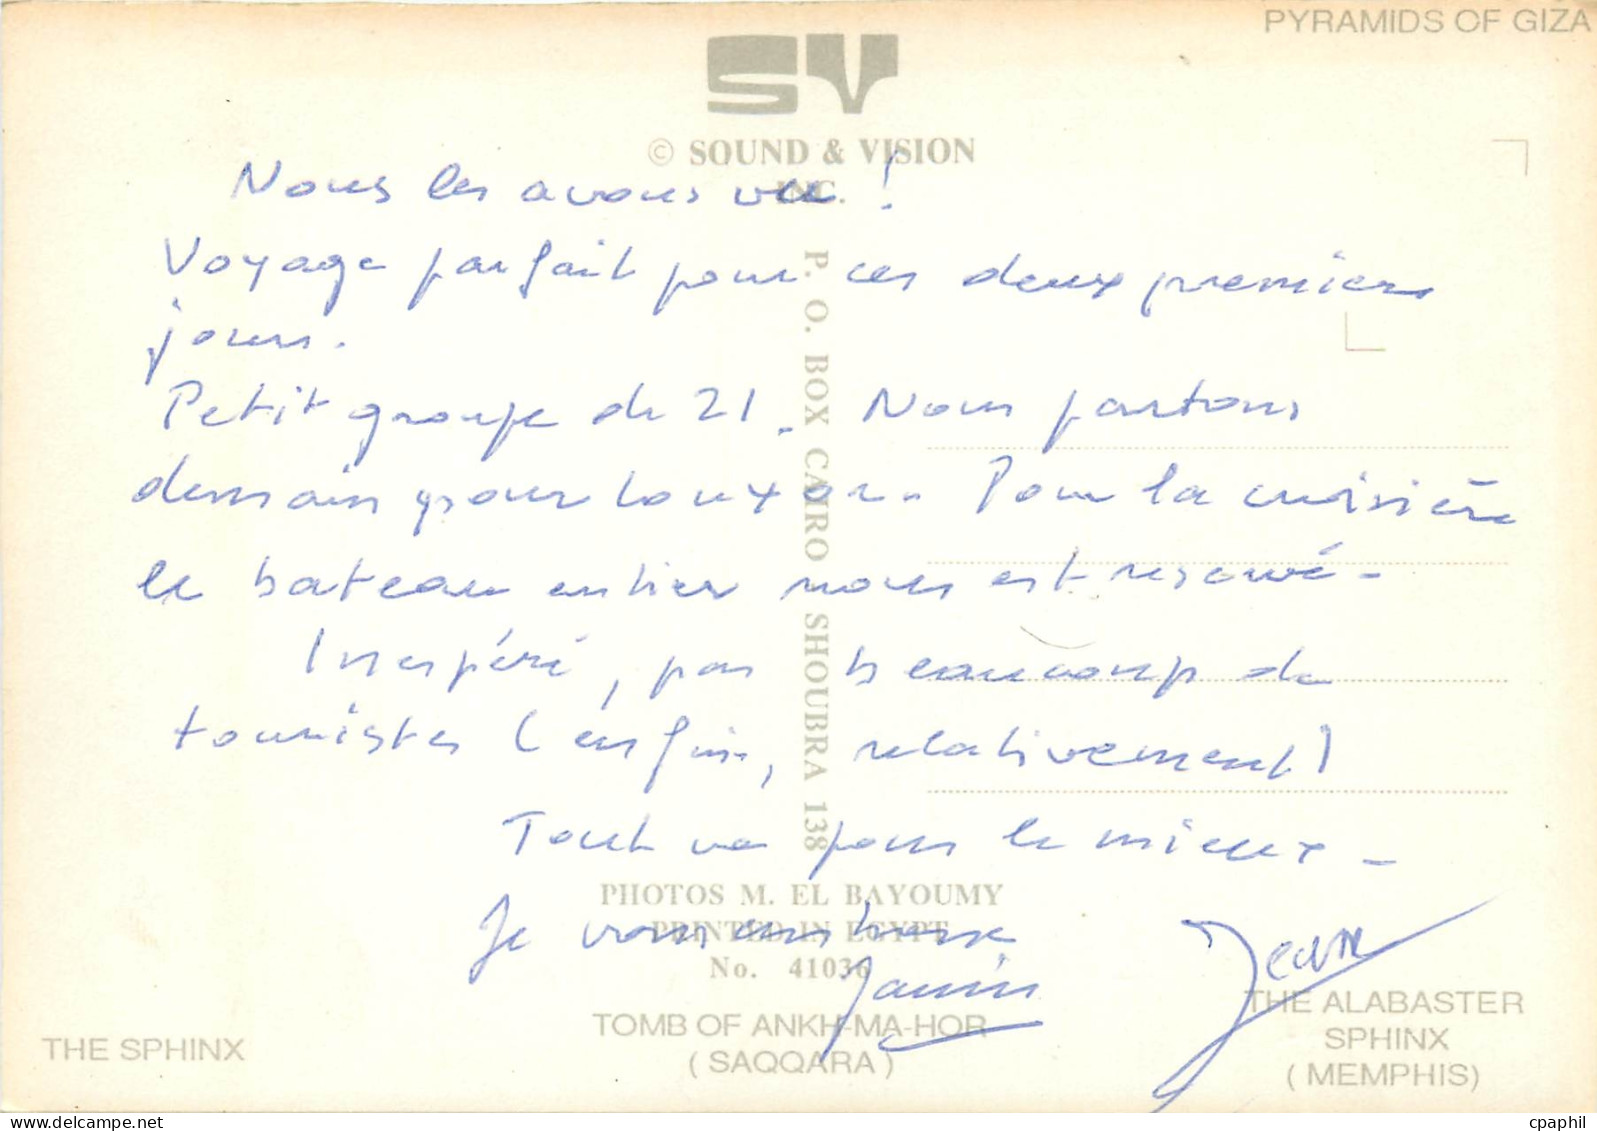 PYRAMIDS OF GIZA
SV
© SOUND & VISION
INC.
Nous les avons vu !
Voyage parfait pour ces deux premiers
jours.
Petit groupe de 21. Nous partons
demain pour Louxor. Pour la croisière
le bateau entier nous est réservé.
Inespéré, pas beaucoup de
touristes (enfin, relativement)
Tout va pour le mieux.
Je vous embrasse
Janin
Jean
P. O. BOX CAIRO SHOUBRA 138
PHOTOS M. EL BAYOUMY
PRINTED IN EGYPT
No. 41036
THE SPHINX
TOMB OF ANKH-MA-HOR
( SAQQARA )
THE ALABASTER
SPHINX
( MEMPHIS)
cpaphil